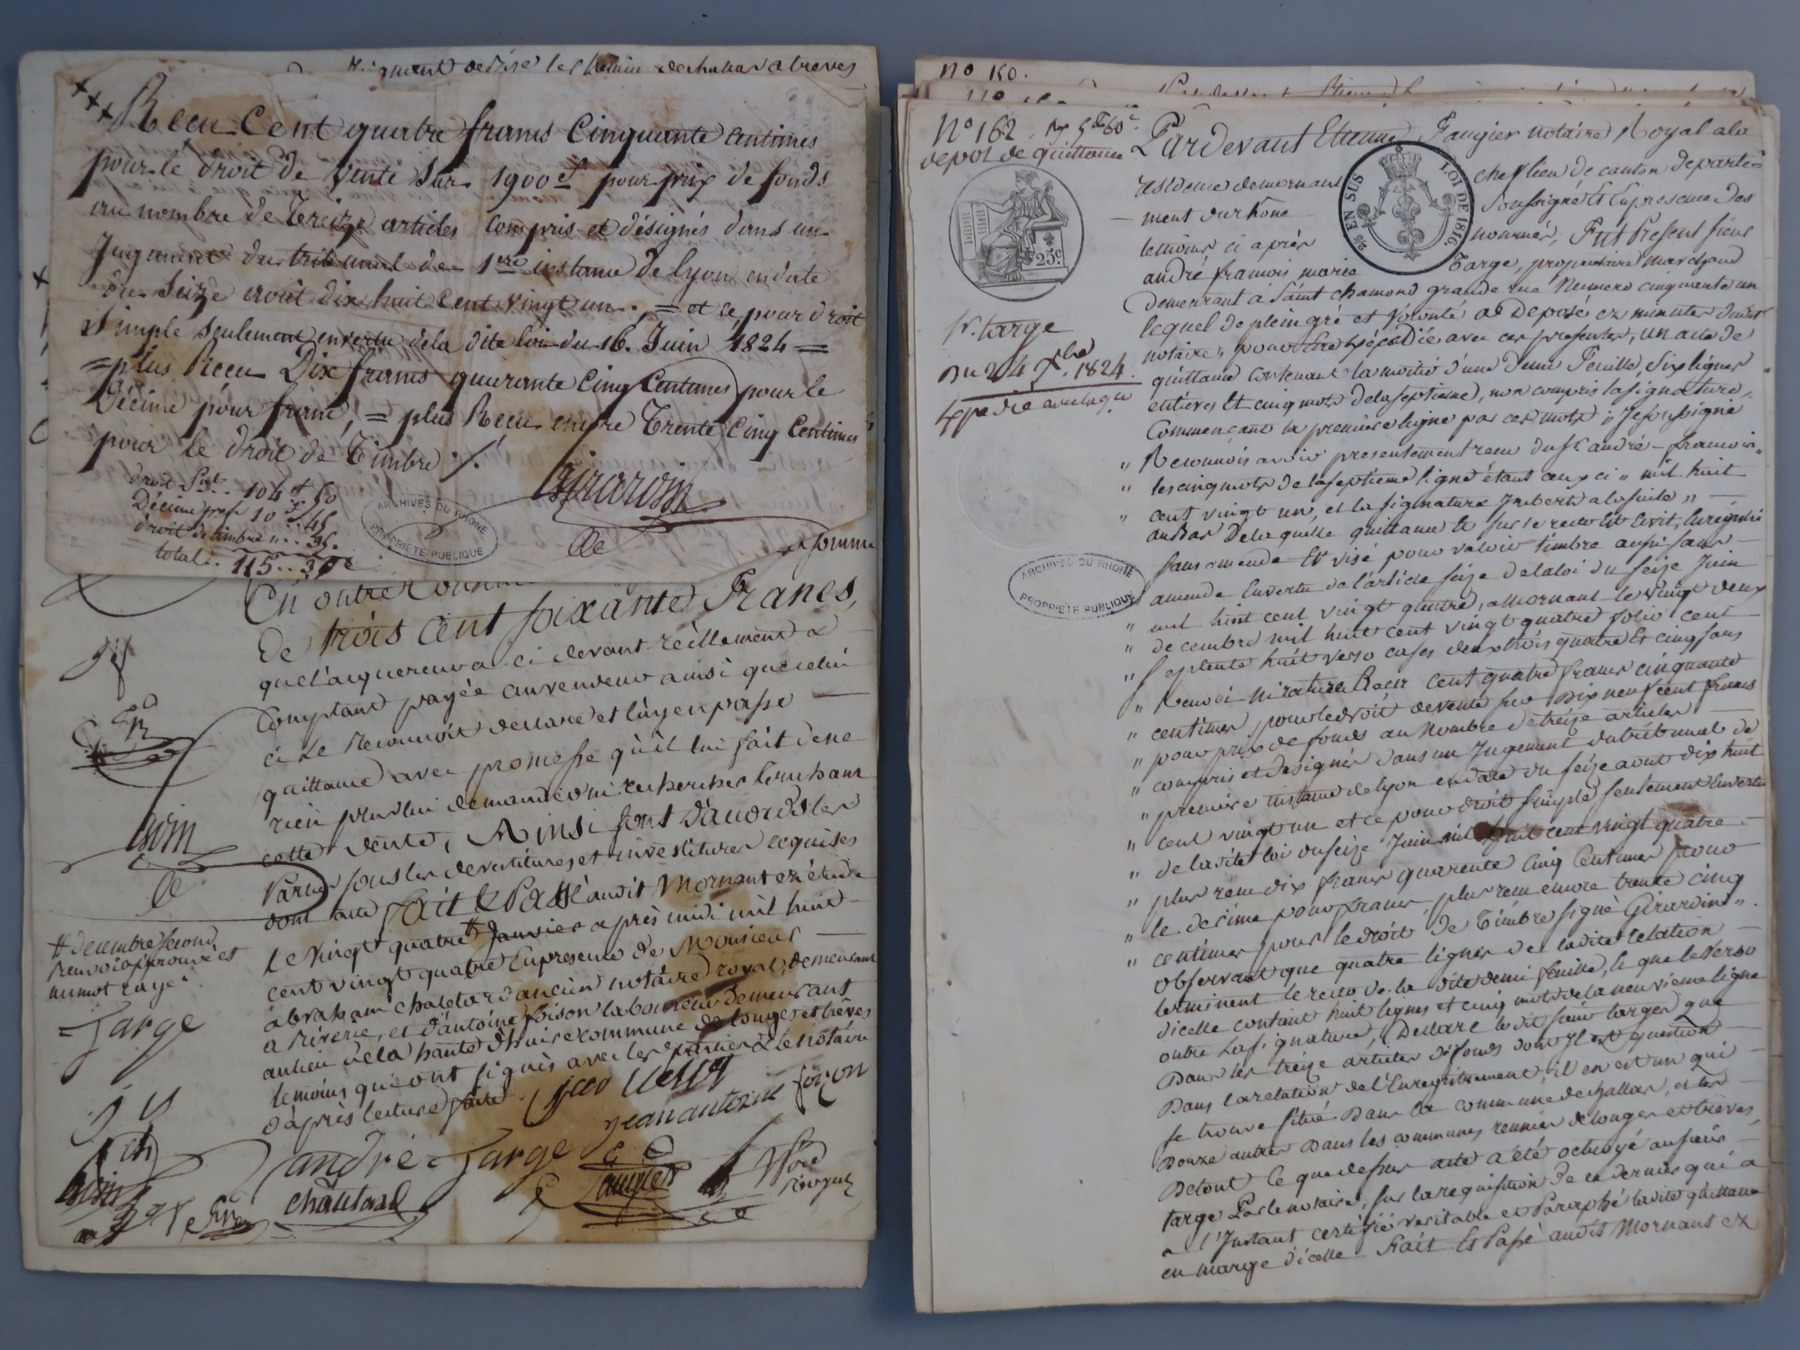 le chemin de chassan a treves
Recu Cent quatre francs Cinquante centimes
pour le droit de vente sur 1900 f pour prix de fonds
au nombre de Treize articles Compris et désignés dans un
Jugement du tribunal de 1ere instance de lyon en date
du Seize aout dix huit Cent vingt un. = et ce, pour droit
Simple seulement en vertu de la dite loi du 16. Juin 1824 =
= plus Recu Dix francs quarante Cinq Centimes pour le
Décime pour franc, = plus Recu encore Trente Cinq Centimes
pour le droit de Timbre ./.
droit 104 f 50
Décime pr f 10 f 45
droit de timbre " .. 35.
total. 115 .. 30 c
Girardin
ARCHIVES DU RHONE
PROPRIETE PUBLIQUE
De
a somme
En outre
De trois cent soixante Francs,
que l'acquereur a ci devant réellement &
Comptant payée au vendeur ainsi que celui
ci le reconnoit déclare et l'en passe
quittance avec promesse qu'il lui fait de ne
rien plus lui demander ni rechercher
cette vente, Ainsi sont D'accord les
Parties sous les devestitures et investitures requises
dont acte Fait & Passé audit Mornant ez étude
le vingt quatre janvier après midi mil huit
cent vingt quatre En presence de Monsieur
abraham chalelard ancien notaire royal, demeurant
a Riverie, et d'antoine foison laboureur demeurant
au lieu de la haute commune de longes et trèves
temoins qui ont signés avec les parties & le notaire
d'après lecture faite.
# decembre second
renvoi approuvé et
un mot rayé.
Targe
jean antoine foison
andré Targe
Faugier
No 160.
No 162
depot de quittance
Pardevant Etienne Faugier notaire Royal a la
résidence de mornant
chef lieu de canton departe-
ment du rhone
soussigné Et En presence des
temoins ci après
nommés, Fut Present sieur
andré francois marie
Targe, proprietaire marchand
25 EN SUS
LOI DE 1816
25 c
demeurant à Saint chamond grande rue Numero cinquante un
lequel de plein gré et volonté a Deposé ez minutes dudit
notaire, pour être expédiée avec ces presentes, un acte de
quittance contenant la moitié d'une demi Feuille, six lignes
entières Et cinq mots de la septieme, non compris la signature,
Commençant la premiere ligne par ces mots ; Je soussigné
" Reconnois avoir presentement recu du Sr andré-francois
" les cinq mots de la septieme ligne étant ceux ci " mil huit
" cent vingt un, et la signature Imbert a la suite "
au Bas De laquelle quittance Et sur le recto Est Ecrit, Enregistré
sans amende Et visé pour valoir timbre aussi sans
amende En vertu de l'article seize de la loi du seize Juin
" mil huit cent vingt quatre, a Mornant le vingt deux
" decembre mil huit cent vingt quatre folio cent
" septente huit verso cases deux trois quatre Et cinq sans
" Renvoi ni rature Recu cent quatre francs cinquante
" centimes pour le droit de vente sur Dix neuf cent francs
" pour prix de fonds au Nombre de treize articles
" compris et designés dans un Jugement du tribunal de
" première instance de lyon en date du seize aout dix huit
" cent vingt un et ce pour droit simple seulement En vertu
" de la dite loi du seize Juin mil huit cent vingt quatre
" plus recu dix francs quarante cinq Centimes pour
" le decime pour franc, plus recu encore trente cinq
" centimes pour le droit de Timbre signé Girardin ".
Observant que quatre lignes de ladite relation
terminent le recto de la dite demi feuille, & que le Verso
d'icelle contient huit lignes et cinq mots de la neuvieme ligne
outre la signature, Declare ledit sieur targe que
Dans les treize articles de fonds dont Il est question
Dans la relation de l'Enregistrement, il en est un qui
se trouve situé Dans la commune de chassan, et les
Douze autres Dans les communes reunies de longes et trèves,
De tout ce que dessus acte a été octroyé au sieur
targe Par le notaire, sur la requisition De ce dernier qui a
à l'Instant certifié veritable et Paraphé ladite quittance
en marge d'icelle Fait Et Passé audit Mornant ez
Sr. targe
Du 24 Xbre 1824.
ARCHIVES DU RHONE
PROPRIETE PUBLIQUE